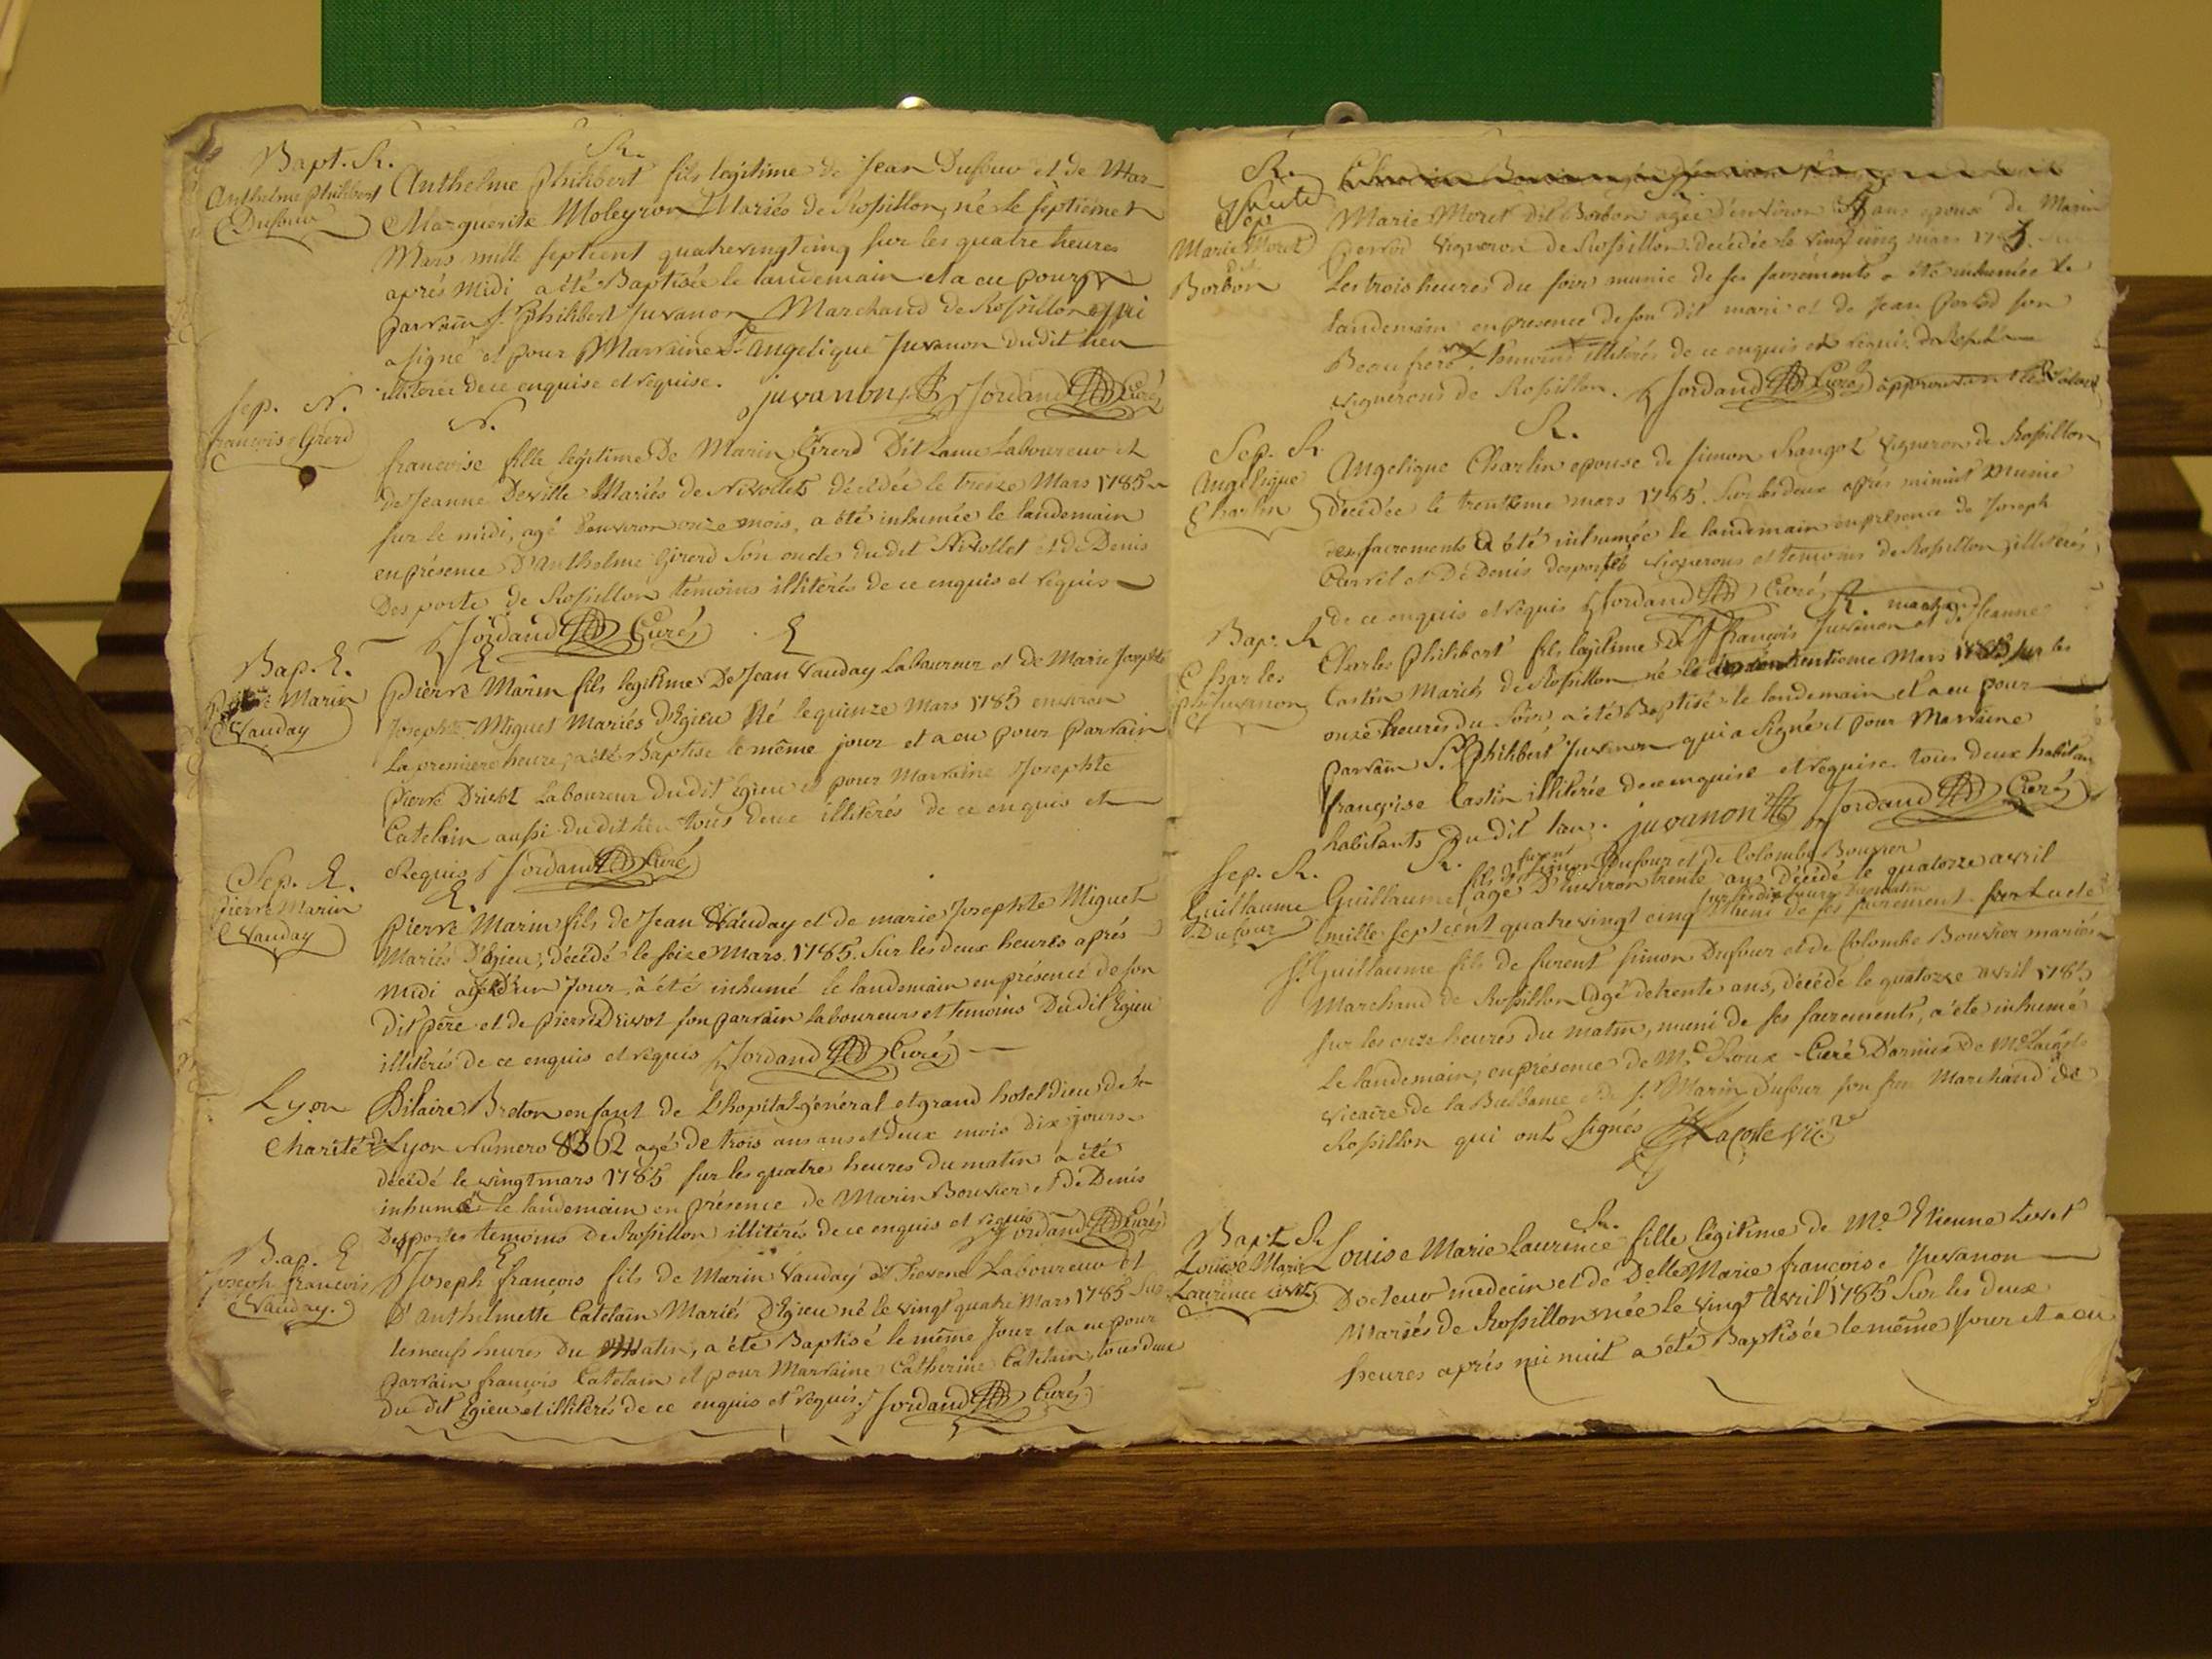 Bapt. R.
Anthelme Philibert
Dufour
R.
Anthelme Philibert fils légitime de Jean Dufour et de Mar
Marguerite Moleyron Mariés de Rossillon, né le septieme
Mars mille sept cent quatre vingt cinq sur les quatre heures
après midi a été Baptisée le landemain et a eu pour
parrain S. Philibert Juvanon Marchand de Rossillon qui
a signé et pour Marraine Angelique Juvanon dudit lieu
illiterée de ce enquise et requise. juvanon Jordand Curé
Sep. N.
francoise Girerd
N.
francoise fille légitime De Marin Girerd Dit Lami Laboureur et
de Jeanne Deville Mariés de Nivollet décédée le treize Mars 1785
sur le midi, agé d'environ onze mois, a été inhumée le landemain
en présence D'Anthelme Girerd son oncle dudit Nivollet et de Denis
Desporte de Rossillon témoins illiterés de ce enquis et requis
Jordand Curé
Bap. E.
Pierre Marin
Vauday
E
Pierre Marin fils légitime De Jean Vauday Laboureur et de Marie Josephte
Josephte Miguet Mariés d'Egieu Né le quinze Mars 1785 environ
La premiere heure, a été Baptise le même jour et a eu pour parrain
Pierre Drivot Laboureur dudit Egieu et pour Marraine Josephte
Catelain aussi dudit lieu tous deux illiterés de ce enquis et
Requis Jordand Curé
Sep. E.
Pierre Marin
Vauday
E.
Pierre Marin fils de Jean Vauday et de marie Josephte Miguet
Mariés D'Egieu, décédé le seize Mars 1785. Sur les deux heures après
Midi agé d'un Jour, a été inhumé le landemain en présence de son
dit père et de pierre Drivot son parrain laboureurs et temoins Dudit Egieu
illiterés de ce enquis et requis Jordand Curé
Lyon
Charité
Hilaire Breton enfant de L'hopital général et grand hotel dieu de
Lyon Numero 8362 agé de trois ans ans et deux mois dix jours
décédé le vingt mars 1785 sur les quatre heures du matin a été
inhumé le landemain en présence de Marin Bouvier et de Denis
Desportes temoins de Rossillon illiterés de ce enquis et requis Jordand Curé
Bap. E
Joseph francois
Vauday.
E
Joseph francois fils de Marin Vauday et Laboureur et
D'Anthelmette Catelain Mariés D'Egieu né le vingt quatre Mars 1785 Sur
les neuf heures du Matin, a été Baptisé le même Jour et a eu pour
parrain francois Catelain et pour Marraine Catherine Catelain, tous deux
du dit Egieu et illiterés de ce enquis et requis. Jordand Curé
R.
Sep
Marie Moret
Borbon
R
Marie Moret dit Borbon agée d'environ ans epouse de Marin
vigneron de Rossillon. decédée le vingt cinq mars
Les trois heures du soir munie de ses sacréments a été inhumée le
Landemain en présence de son dit mari et de Jean son
Beaufrere temoins illiterés de ce enquis et requis
vignerons de Rossillon. Jordand Curé approuvant
Sep. R
Angelique
Charlin
R.
Angelique Charlin epouse de Simon Rangot Vigneron de Rossillon
décédée le trentieme mars 1785. Sur les deux après minuit Munie
des sacrements a été inhumée le landemain en présence de Joseph
Carrel et De Denis desportes vignerons et temoins de Rossillon illiterés
de ce enquis et requis Jordand Curé
Bap. R
Charles
Ph. Juvanon
R.
Charles Philibert fils légitime de francois Juvanon et de Jeanne
Castin Mariés de Rossillon né le trentieme Mars 1785 sur les
onze heures du soir a été Baptisé le landemain et a eu pour
parrain S. Philibert Juvanon qui a signé et pour Marraine
françoise Castin illitérée de ce enquise et requise. tous deux habitan
habitants dudit lieu. juvanon Jordand Curé
Sep. R.
Guillaume
Dufour
R.
fils de furent Simon Dufour et de Colombe Bouvier
Guillaume agé D'environ trente ans décédé le quatorze avril
mille sept cent quatre vingt cinq sur les dix heures du matin Muni de ses sacrements
S. Guillaume fils de furent Simon Dufour et de Colombe Bouvier mariés
Marchand de Rossillon agé de trente ans, décédé le quatorze avril 1785
sur les onze heures du matin, muni de ses sacrements, a été inhumé
Le landemain, en présence de Mre Roux Curé D'armix de Mre Lacoste
vicaire de la Burbanne et de S. Marin Dufour son frere Marchand de
Rossillon qui ont signés Lacoste vic.
Bapt. R
Louise Marie
Laurence Livet
R.
Louise Marie Laurence fille légitime de Me. Etienne Livet
Docteur medecin et de Delle Marie françoise Juvanon
Mariés de Rossillon née le vingt avril 1785 Sur les deux
heures après minuit a été Baptisée le même Jour et a eu